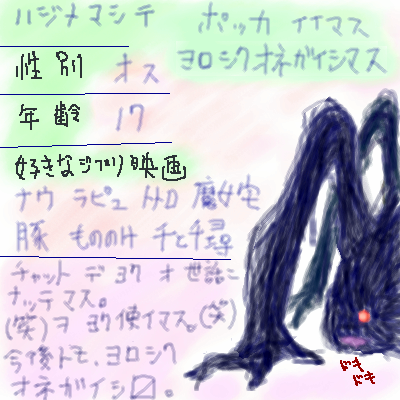 ハジメマシテ
ポッカ イイマス
ヨロシク オネガイシマス
性別 オス
年齢 17
好きなジブリ映画
ナウ ラピュ トトロ 魔女宅
豚 もののけ 千と千尋
チャット デ ヨク オ世話ニ
ナッテマス。
(笑)ヲ ヨク使イマス。(笑)
今後トモ、ヨロシク
オネガイシ〼。
ドキ
ドキ